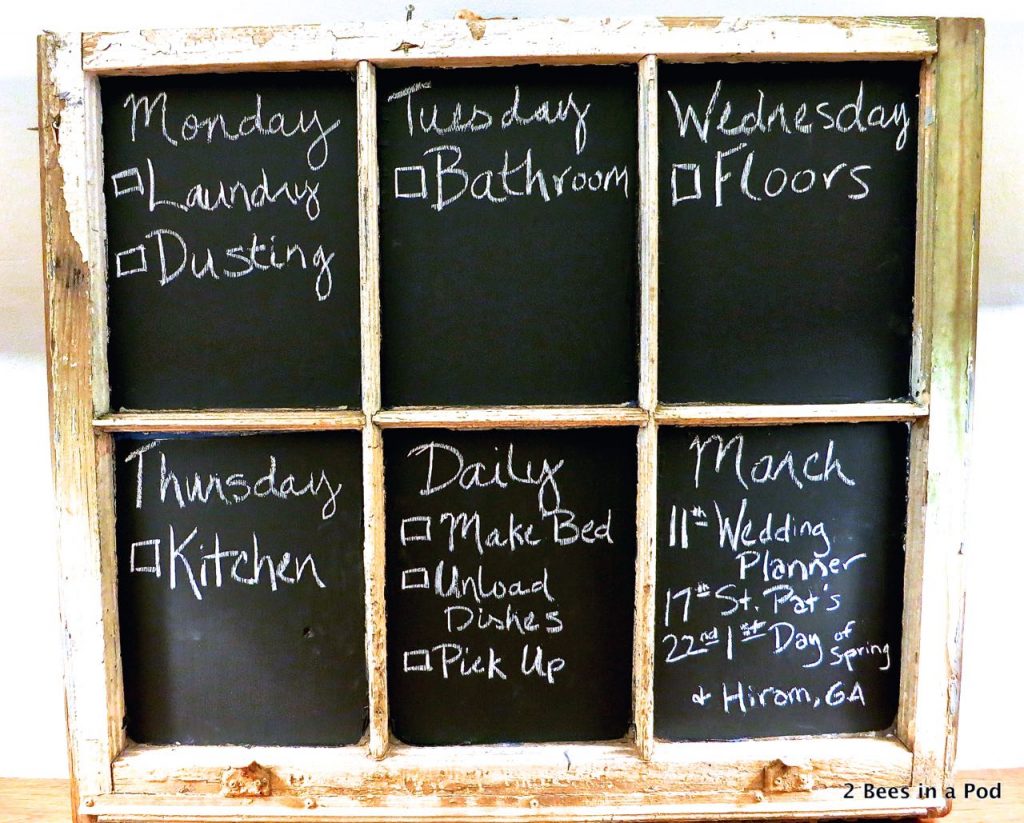 Monday
Laundry
Dusting
Tuesday
Bathroom
Wednesday
Floors
Thursday
Kitchen
Daily
Make Bed
Unload
Dishes
Pick Up
March
11th Wedding
Planner
17th St. Pat's
22nd 1st Day of Spring
+ Hiram, GA
2 Bees in a Pod